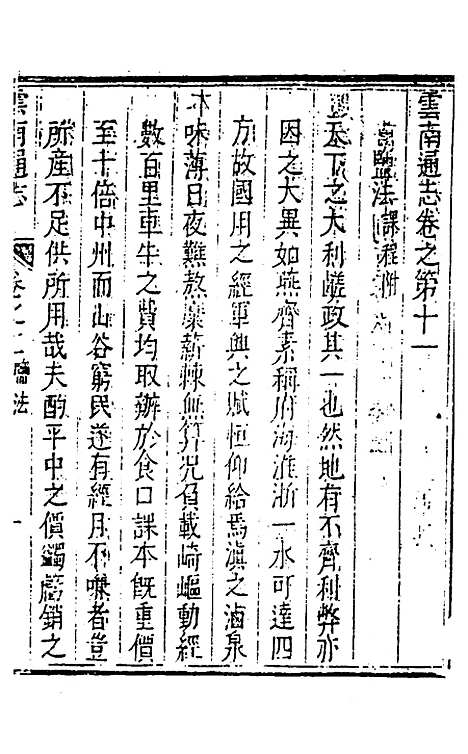 雲南通志卷之第十一
鹽法課程附
天下之大利鹺政其一也然地有不齊利弊亦
因之大異如燕齊素稱府海淮浙一水可達四
方故國用之經軍興之賦恒仰給焉滇之滷泉
味薄日夜難熬藁薪棘無算况負載崎嶇動經
數百里車牛之費均取辦於食口課本既重價
至十倍中州而山谷窮民遂有經月不嗛者豈
所産不足供所用哉夫酌平中之價蠲舊銷之
雲南通志
卷之十一鹽法
一